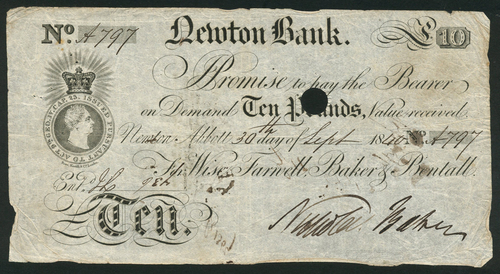 No. A797 Newton Bank. £10
I Promise to pay the Bearer
on Demand Ten Pounds, Value received
Newton Abbott 30th day of Sept 1840 No. A797
For Wise, Farwell, Baker & Bentall.
Entd.
Ten.
Baker